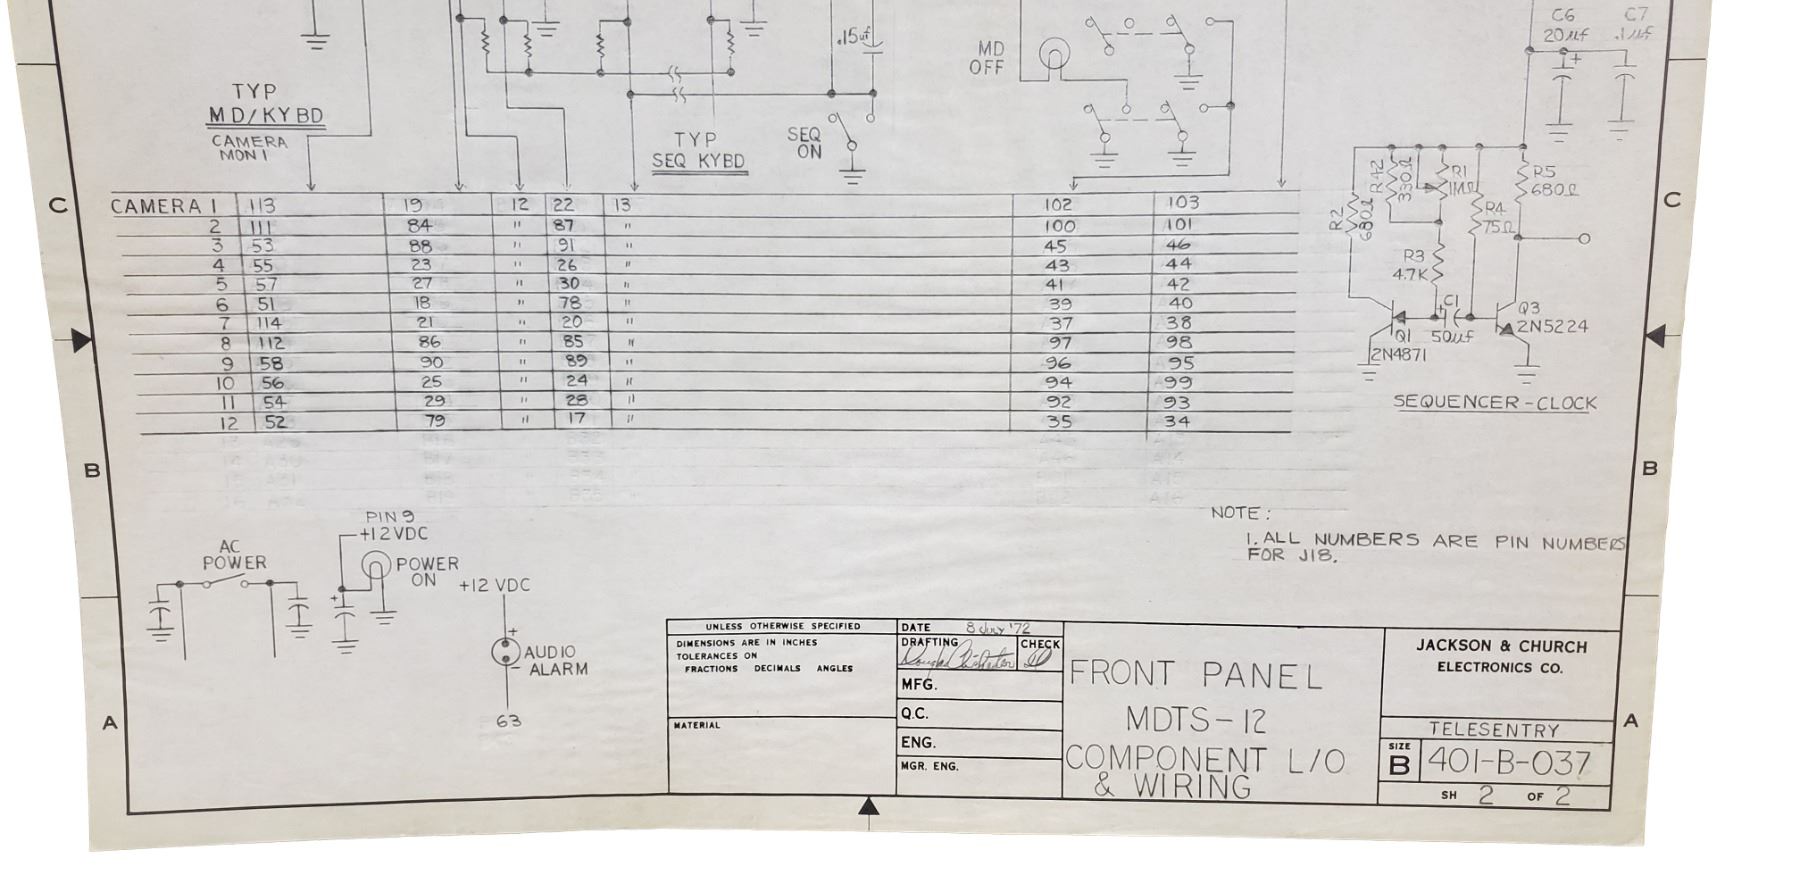 C6
20µf
C7
.1µf
.15uf
MD
OFF
TYP
MD/KYBD
CAMERA
MON 1
TYP
SEQ KYBD
SEQ
ON
C
C
CAMERA 1 113 19 12 22 13 102 103
2 111 84 " 87 " 100 101
3 53 88 " 91 " 45 46
4 55 23 " 26 " 43 44
5 57 27 " 30 " 41 42
6 51 18 " 78 " 39 40
7 114 21 " 20 " 37 38
8 112 86 " 85 " 97 98
9 58 90 " 89 " 96 95
10 56 25 " 24 " 94 99
11 54 29 " 28 " 92 93
12 52 79 " 17 " 35 34
R2
680Ω
R42
330Ω
R1
1MΩ
R5
680Ω
R4
75Ω
R3
4.7K
C1
50uf
Q1
2N4871
Q3
2N5224
SEQUENCER-CLOCK
B
B
NOTE:
1. ALL NUMBERS ARE PIN NUMBERS
FOR J18.
AC
POWER
PIN 9
+12VDC
POWER
ON
+12 VDC
AUDIO
ALARM
63
A
A
UNLESS OTHERWISE SPECIFIED
DIMENSIONS ARE IN INCHES
TOLERANCES ON
FRACTIONS DECIMALS ANGLES
MATERIAL
DATE 8 July '72
DRAFTING
CHECK
MFG.
Q.C.
ENG.
MGR. ENG.
FRONT PANEL
MDTS-12
COMPONENT L/O
& WIRING
JACKSON & CHURCH
ELECTRONICS CO.
TELESENTRY
SIZE
B 401-B-037
SH 2 OF 2